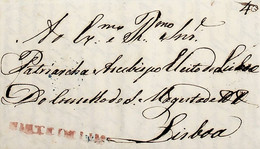 Ao Ex.mo R.mo Snr.
Patriarcha Arcebispo Eleito de Lisboa
Do Conselho de S. Magestade
Lisboa